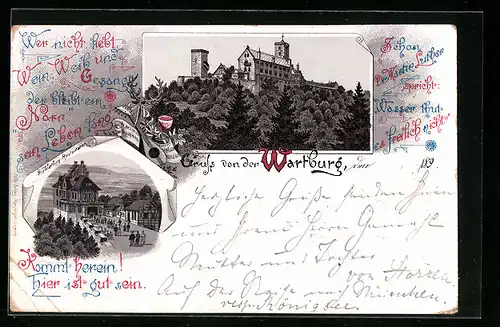 Wer nicht liebt
Wein Weib und
Gesang
der bleibt ein
Narr
sein Leben lang
Schon
Doktor Luther
spricht:
Wasser thut
es freilich nicht!
Gruss von der Wartburg, den 189
Kommt herein!
hier ist gut sein.
Herzliche Grüße senden Ihnen
und Ihrer Frau Gemahl
Mutter und Tochter
von
Auf der Reise nach München.